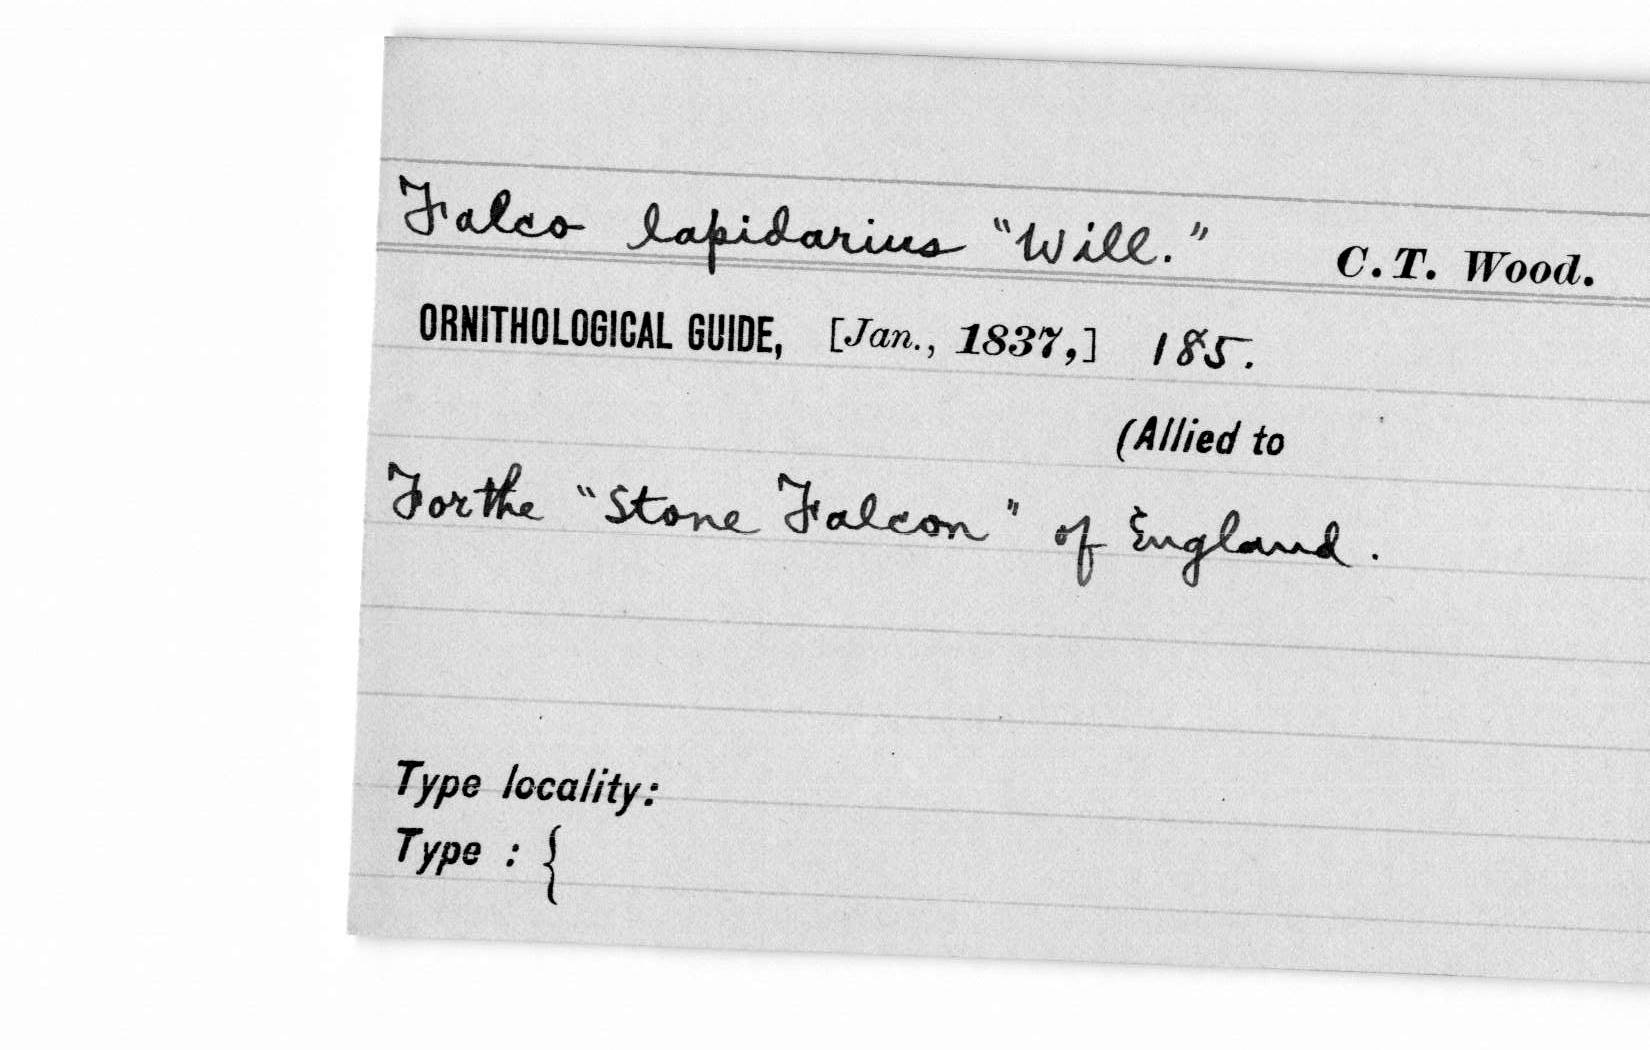 Falco lapidarius "Will." C.T. Wood.
ORNITHOLOGICAL GUIDE, [Jan., 1837,] 185.
(Allied to
For the "Stone Falcon" of England.
Type locality:
Type : {